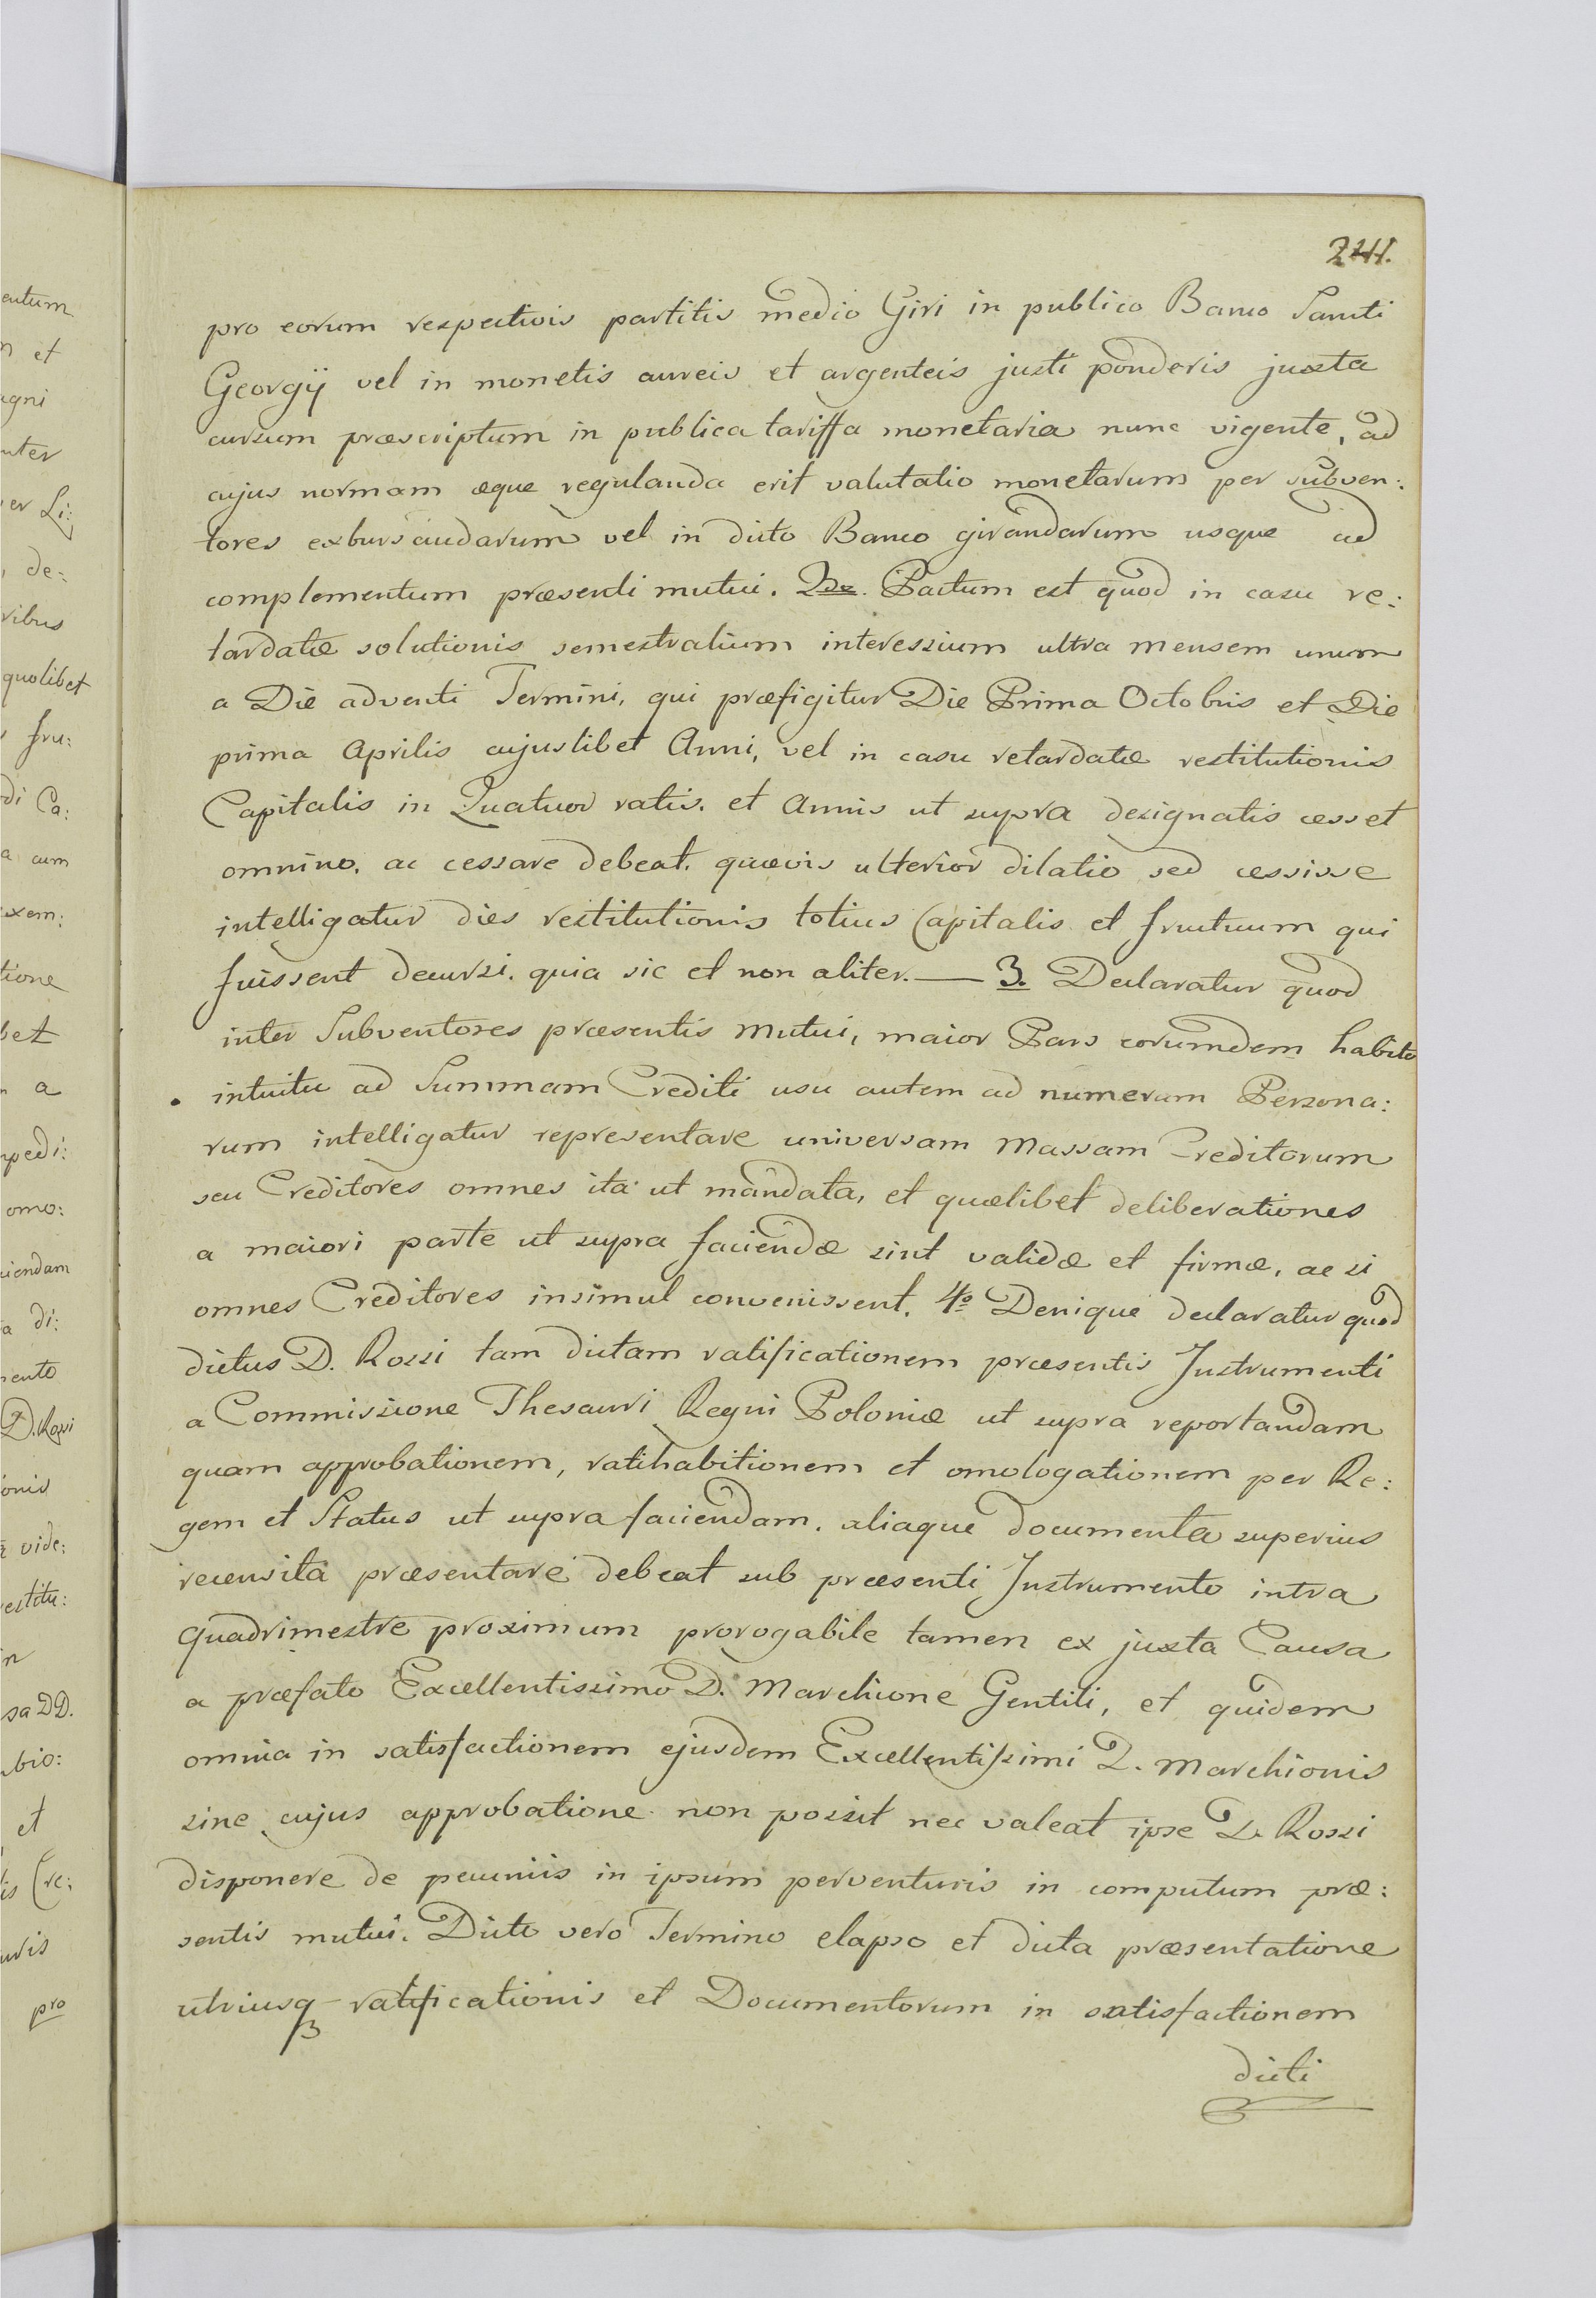 241.
pro eorum respectivis partitis medio Giri in publico Banco Sancti
Georgij vel in monetis aureis et argenteis justi ponderis juxta
cursum præscriptum in publica tariffa monetaria nunc vigente, ad
cujus normam æque regulanda erit valutatio monetarum per subven:
tores exbursandarum vel in dicto Banco girandarum usque ad
complementum præsenti mutui. 2do. Pactum est quod in casu re:
tardatæ solutionis semestralium interessium ultra mensem unum
a Die adventi Termini, qui præfigitur Die Prima Octobris et Die
prima Aprilis cujuslibet Anni, vel in casu retardatæ restitutionis
Capitalis in Quatuor ratis. et Annis ut supra designatis cesset
omnino. ac cessare debeat. quævis ulterior dilatio sed cessisse
intelligatur dies restitutionis totius Capitalis et fructuum qui
fuissent decursi. quia sic et non aliter. — 3. Declaratur quod
inter Subventores præsentis Mutui, maior Pars eorumdem habito
intuitu ad Summam Crediti usu autem ad numerum Persona:
rum intelligatur representare universam Massam Creditorum
seu Creditores omnes ita ut mandata, et quælibet deliberationes
a maiori parte ut supra faciendæ sint validæ et firmæ, ac si
omnes Creditores insimul convenissent. 4o Denique declaratur quod
dictus D. Rossi tam dictam ratificationem præsentis Instrumenti
a Commissione Thesauri Regni Poloniæ ut supra reportandam
quam approbationem, ratihabitionem et omologationem per Re:
gem et Status ut supra faciendam. aliaque documenta superius
recensita præsentare debeat sub præsenti Instrumento intra
quadrimestre proximum prorogabile tamen ex juxta Causa
a præfato Excellentissimo D. Marchione Gentili, et quidem
omnia in satisfactionem ejusdem Excellentissimi D. Marchionis
sine cujus approbatione non possit nec valeat ipse D. Rossi
disponere de pecuniis in ipsum perventuris in computum præ:
sentis mutui. Dicto vero Termino elapso et dicta præsentatione
utriusq ratificationis et Documentorum in satisfactionem
dicti